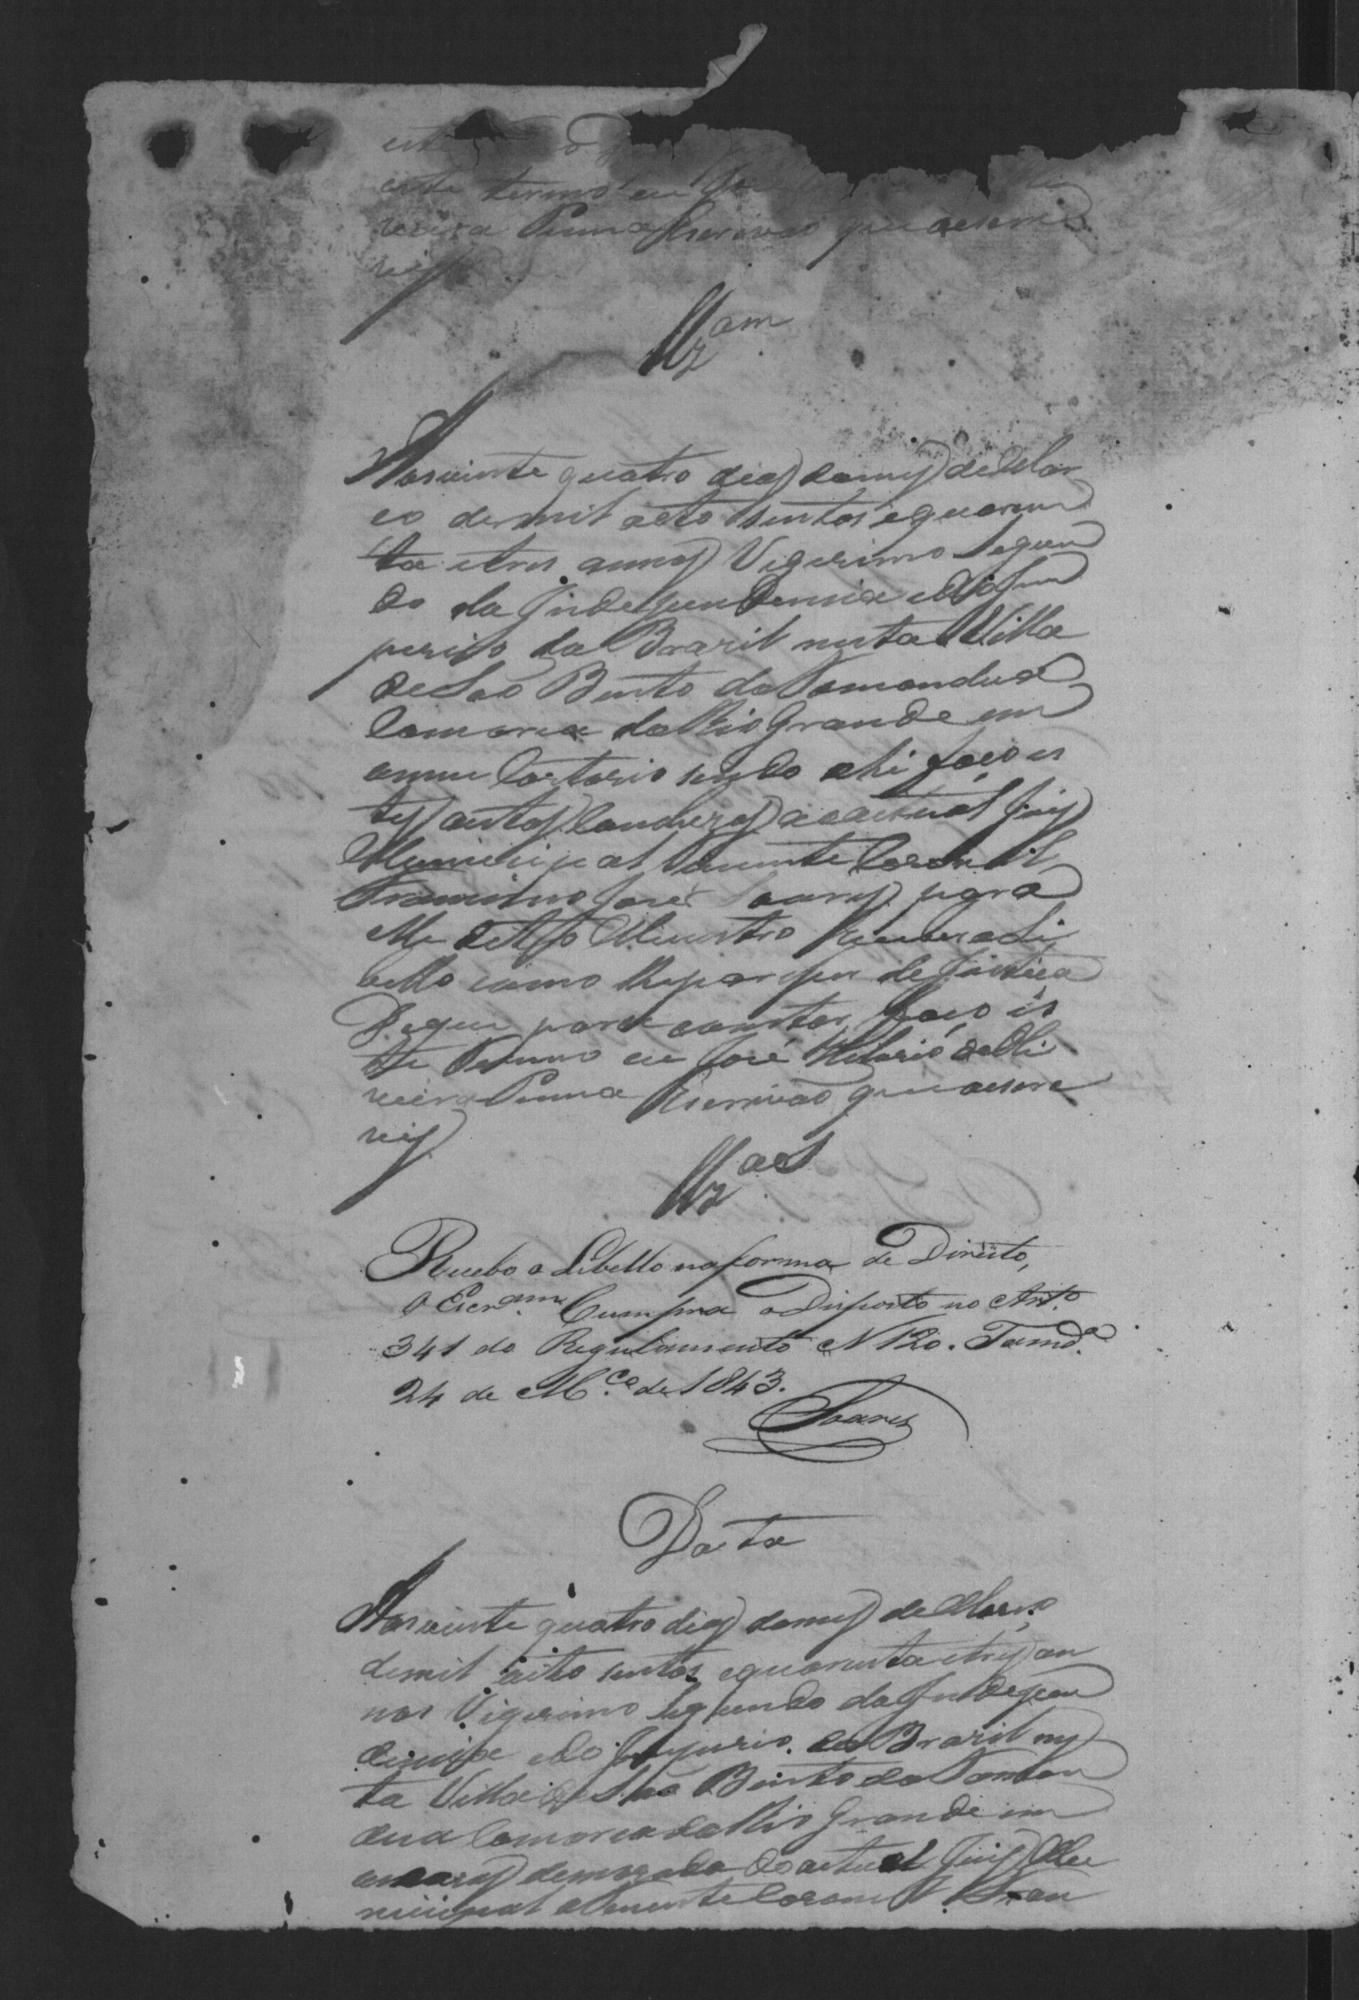 este termo eu
veira Penna Escrivão que aescre
vi
Clzam
Aos vinte quatro dias domes de Mar
ço demil oito sentos equaren
ta etres annos Vigesimo Segun
do da Independencia edo Im
perio do Brazil nesta Villa
de São Bento do Tamandua
Comarca do Rio Grande em
omeu Cartorio sendo ahi faço es
tes autos Concluzos ao actual Juis
Municipal Tenente Coronel
Francisco José Soares para
elle ditto Ministro Receber a Li
bello como Repar por de Justiça
Deque para constar faço es
te Termo eu José Hilario de Oli
veira Penna Escrivão que aescre
vi
Clzaes
Recebo o Libello na forma de Direito,
O Escram Cumpra o Disposto no Arto
341 do Regulamento N 120. Tamda
24 de Mço de 1843.
Soares
Data
Aos vinte quatro dias domes de Março
demil oito sentos equarenta etres an
nos Vigesimo Segundo da Indepen
dencia edo Imperio do Brazil nes
ta Villa de São Bento do Taman
dua Comarca do Rio Grande em
ascazas demorada do actual Juis Mu
nicipal e Tenente Coronel Fran